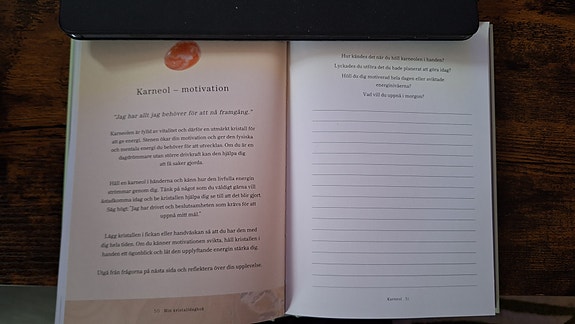 Karneol – motivation
"Jag har allt jag behöver för att nå framgång."
Karneolen är fylld av vitalitet och därför en utmärkt kristall för
att ge energi. Stenen ökar din motivation och ger den fysiska
och mentala energi du behöver för att utvecklas. Om du är en
dagdrömmare utan större drivkraft kan den hjälpa dig
att få saker gjorda.
Håll en karneol i händerna och känn hur den livfulla energin
strömmar genom dig. Tänk på något som du väldigt gärna vill
åstadkomma idag och be kristallen hjälpa dig se till att det blir gjort.
Säg högt: "Jag har drivet och beslutsamheten som krävs för att
uppnå mitt mål."
Lägg kristallen i fickan eller handväskan så att du har den med
dig hela tiden. Om du känner motivationen svikta, håll kristallen i
handen ett ögonblick och låt den upplyftande energin stärka dig.
Utgå från frågorna på nästa sida och reflektera över din upplevelse.
Min kristalldagbok
Hur kändes det när du höll karneolen i handen?
Lyckades du utföra det du hade planerat att göra idag?
Höll du dig motiverad hela dagen eller sviktade
energinivåerna?
Vad vill du uppnå i morgon?
Karneol